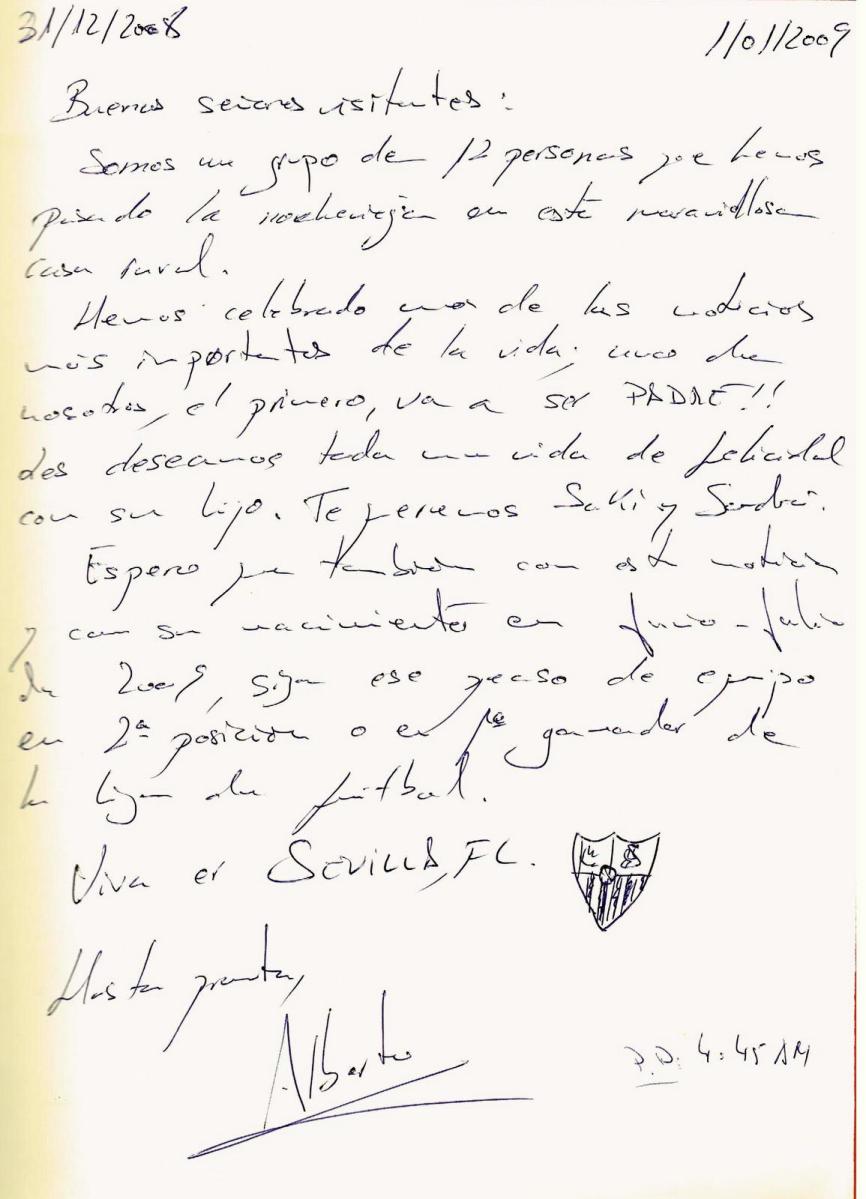 31/12/2008 1/01/2009
Buenos señores visitantes:
Somos un grupo de 12 personas que hemos
pasado la nochevieja en esta maravillosa
casa rural.
Hemos celebrado una de las noticias
más importantes de la vida; uno de
nosotros, el primero, va a ser PADRE!!
Les deseamos toda una vida de felicidad
con su hijo. Te queremos Saki y Sandra.
Espero que también con esta noticia
y con su nacimiento en Junio-Julio
de 2009, siga ese peaso de equipo
en 2ª posición o en 1ª ganador de
la liga de fútbol.
Viva er SEVILLA, FC.
Hasta pronto,
Alberto
P.D: 4:45 AM